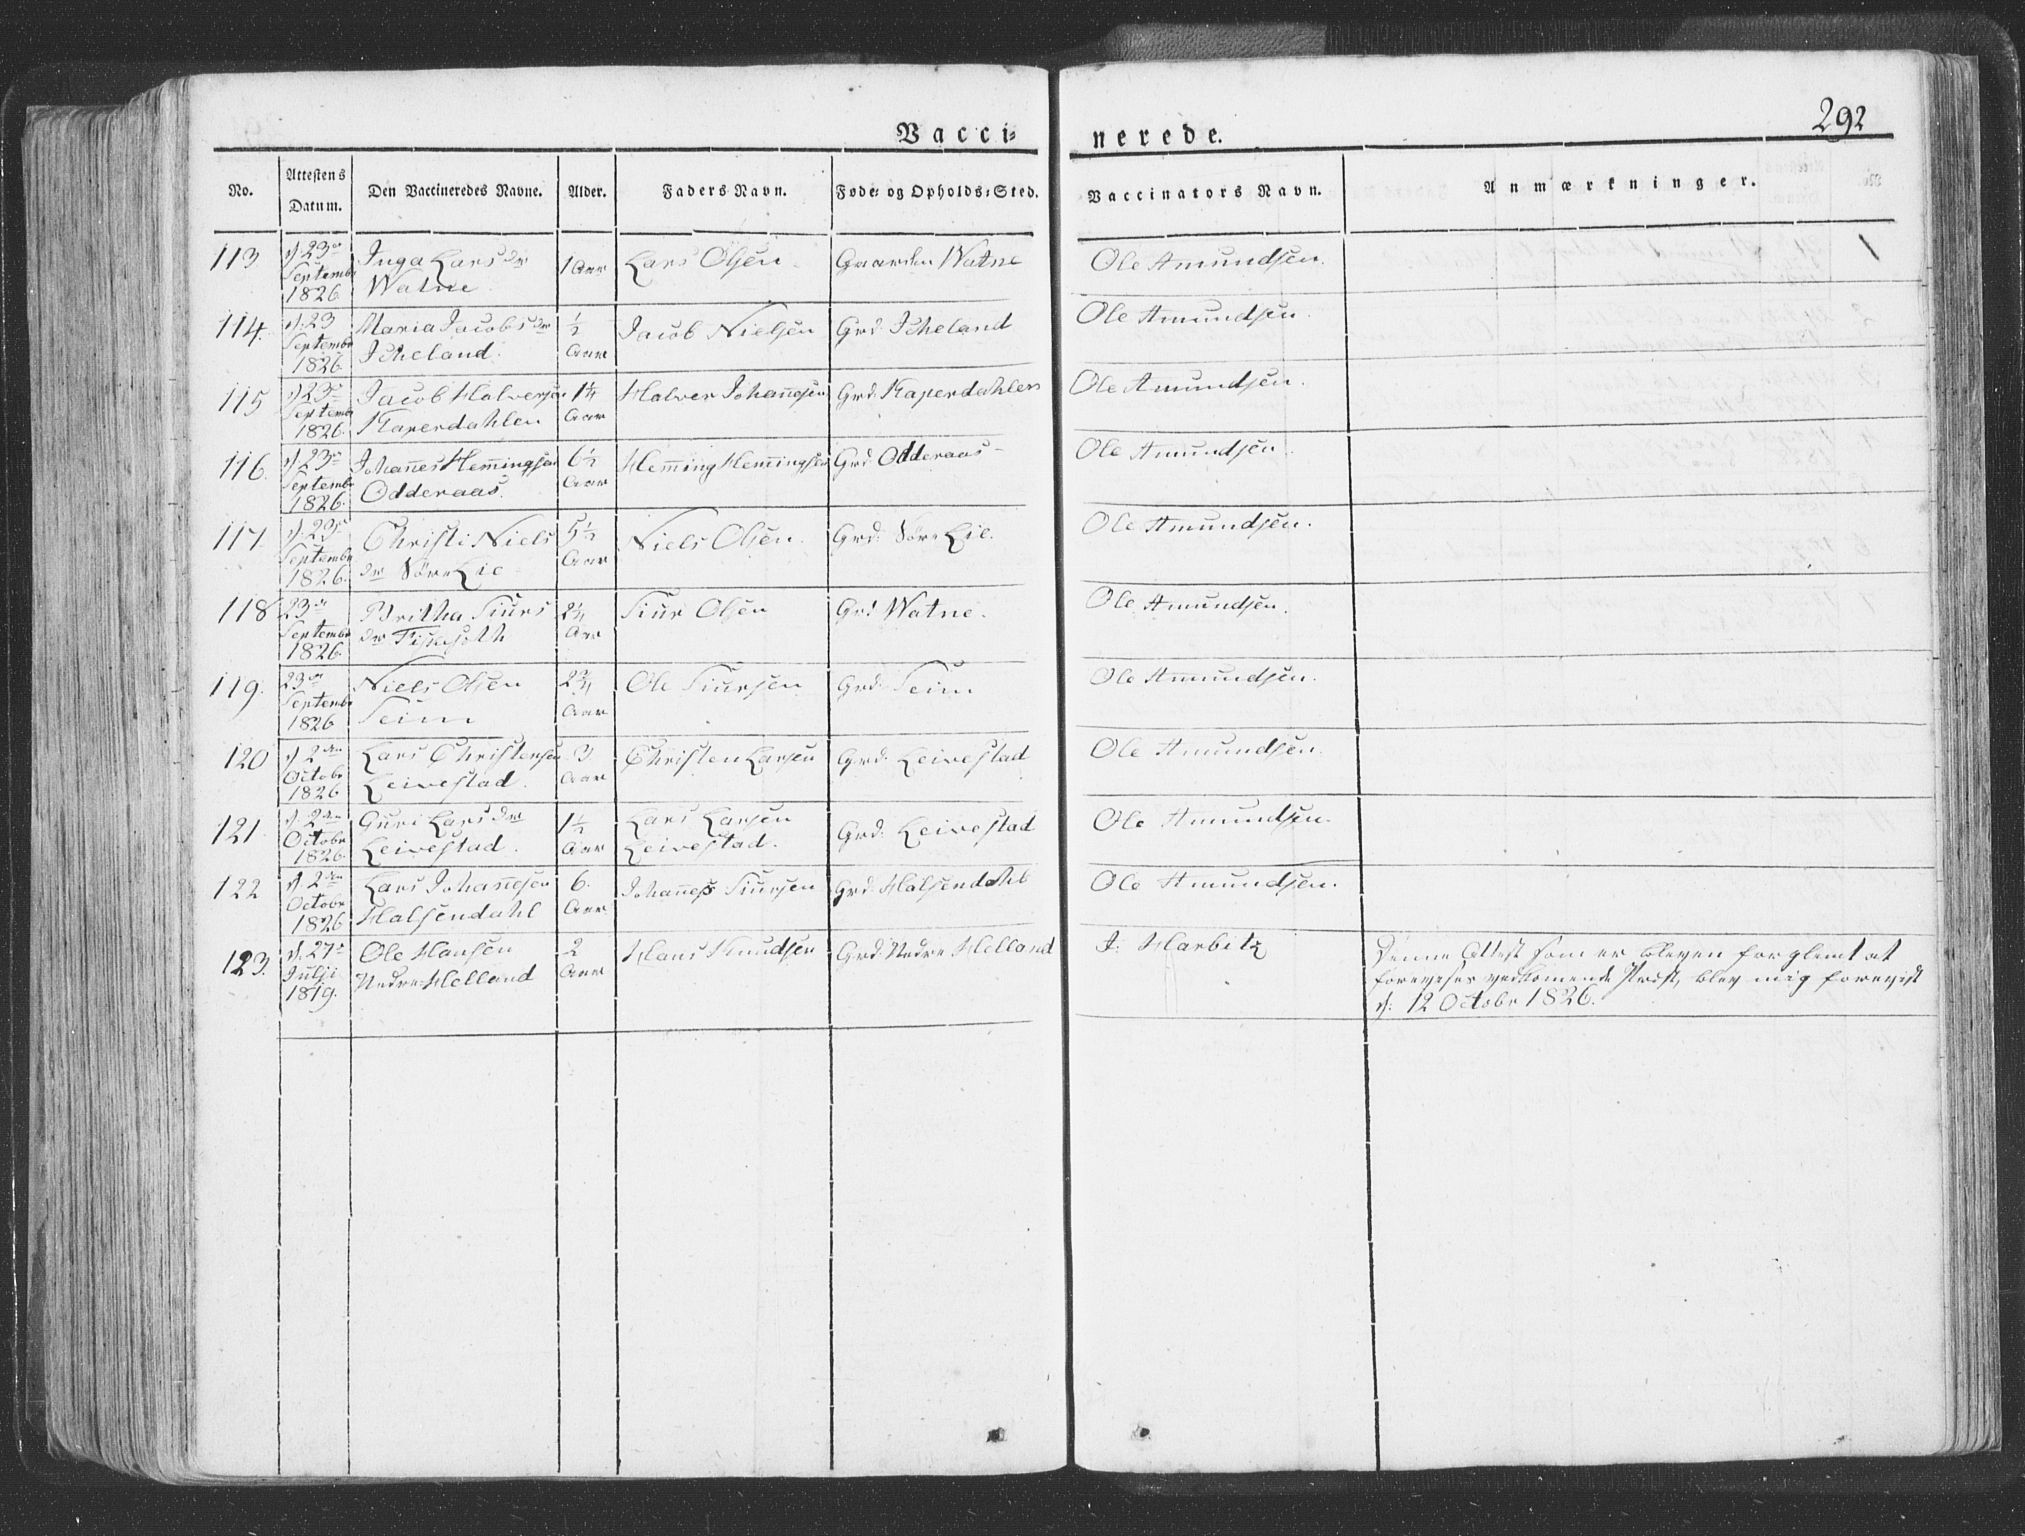 292
Vacci=
nerede.
No. Attestens Datum. Den Vaccineredes Navne. Alder. Faders Navn. Føde= og Opholds=Sted. Vaccinators Navn. Anmærkninger.
113 d. 23de Septembr 1826. Inga Larsdr Watne. 1 Aar Lars Olsen. Gaarden Watne Ole Amundsen.
114. d. 23 Septembr 1826. Maria Jacobsdr Icheland. ½ Aar Jacob Nielsen Grd: Icheland Ole Amundsen.
115 d. 23de Septembr 1826. Jacob Halversen Kaperdahlen 1¼ Aar Halver Johanesen Grd: Kaperdahlen Ole Amundsen.
116. d. 23de Septembr 1826. Johanes Hemingsen Odderaas. 6½ Aar Heming Hemingsen Grd Odderaas Ole Amundsen.
117. d. 23de Septembr 1826. Christi Niels dr Vøre Lie 5½ Aar Niels Olsen. Grd: Vøre Lie. Ole Amundsen.
118 23de Septembr 1826. Britha Siurs dr 2¼ Aar Siur Olsen Grd Watne. Ole Amundsen.
119. 23de Septembr 1826 Niels Olsen Seim 2¾ Aar Ole Siursen Grd: Seim Ole Amundsen.
120 d. 2den Octobr 1826 Lars Christensen Leivestad. 3 Aar Christen Larsen Grd: Leivestad Ole Amundsen.
121 d. 2den Octobr 1826. Guri Larsdr Leivestad. 1½ Aar Lars Larsen Leivestad. Grd: Leivestad Ole Amundsen.
122 d. 2den Octobr 1826 Lars Johanesen Halsendahl 6. Aar Johanes Siursen Grd: Halsendahl Ole Amundsen.
123. d. 27de Julji 1819. Ole Hansen Nedre=Helland 2 Aar Hans Knudsen Grd: Nedre Helland J: Harbitz Denne Attest som er bleven forglemt at
forevises vedkomende Præst, blev mig forevist
d: 12 Octobr 1826.